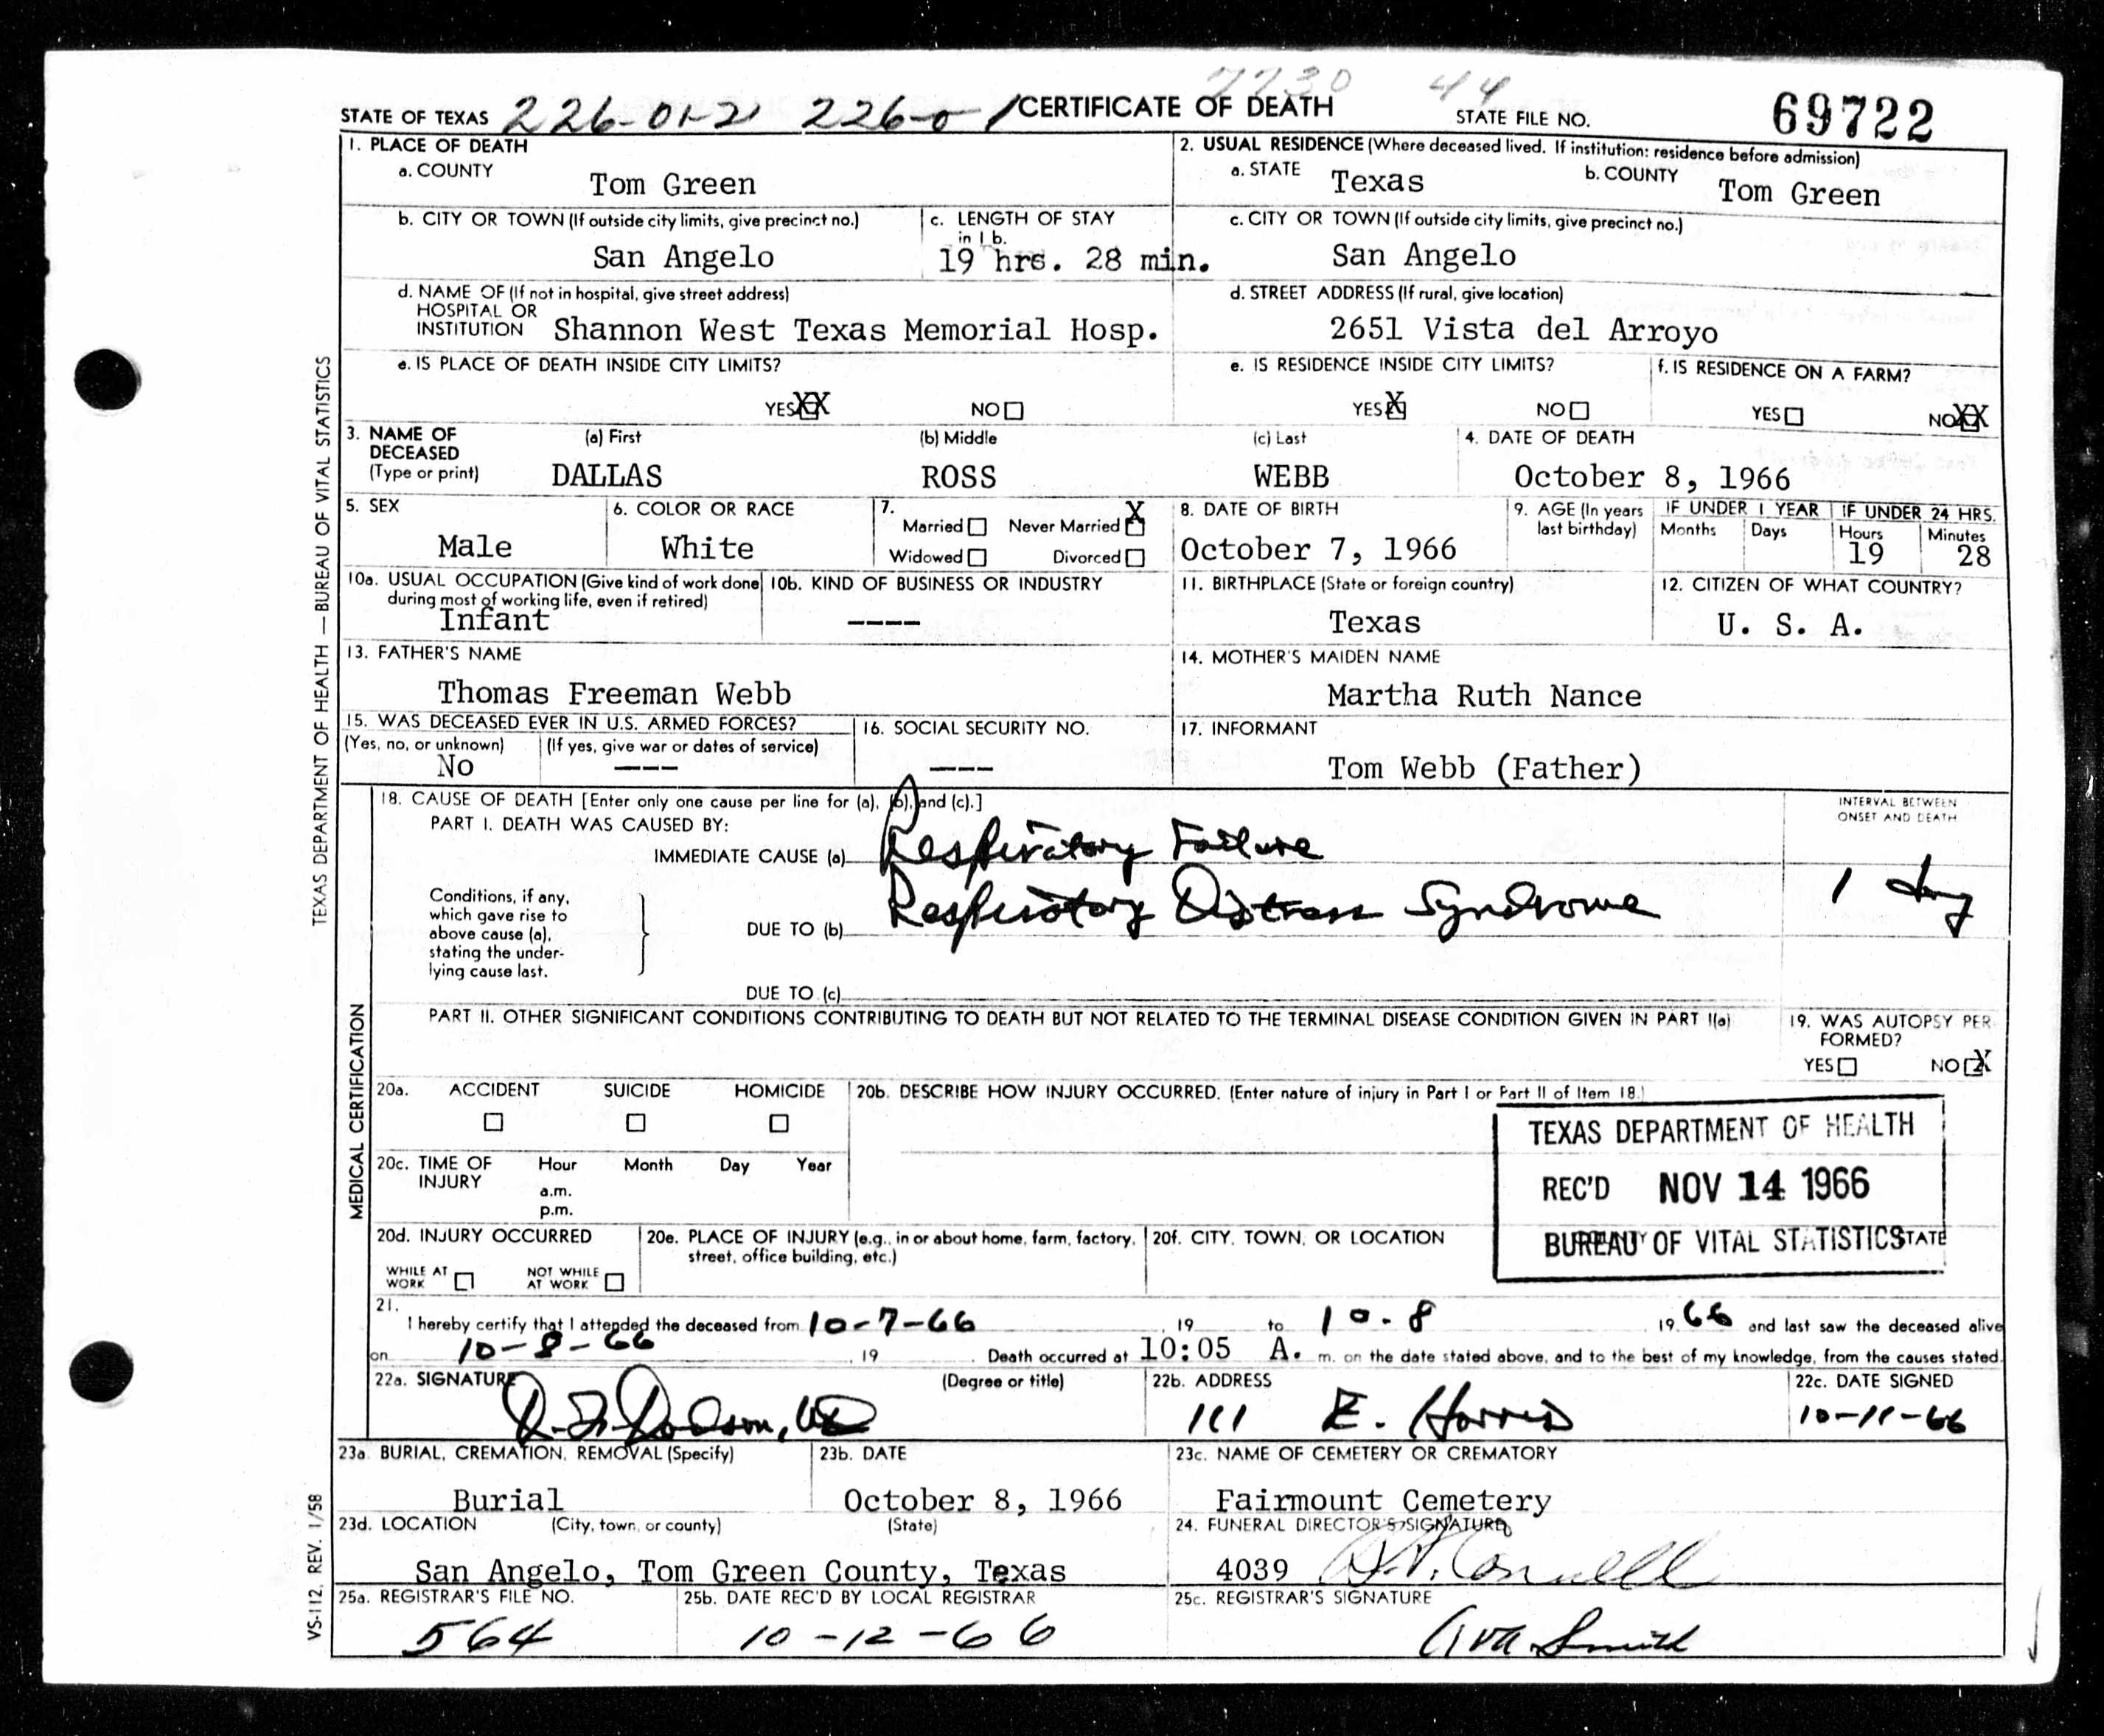 7730 44
STATE OF TEXAS 226-01-21 226-0-1 CERTIFICATE OF DEATH STATE FILE NO. 69722
1. PLACE OF DEATH
a. COUNTY Tom Green
2. USUAL RESIDENCE (Where deceased lived. If institution: residence before admission)
a. STATE Texas b. COUNTY Tom Green
b. CITY OR TOWN (If outside city limits, give precinct no.) San Angelo
c. LENGTH OF STAY in 1 b. 19 hrs. 28 min.
c. CITY OR TOWN (If outside city limits, give precinct no.) San Angelo
d. NAME OF (If not in hospital, give street address)
HOSPITAL OR
INSTITUTION Shannon West Texas Memorial Hosp.
d. STREET ADDRESS (If rural, give location)
2651 Vista del Arroyo
e. IS PLACE OF DEATH INSIDE CITY LIMITS?
YES XX NO
e. IS RESIDENCE INSIDE CITY LIMITS?
YES X NO
f. IS RESIDENCE ON A FARM?
YES NO XX
3. NAME OF DECEASED (Type or print)
(a) First (b) Middle (c) Last
DALLAS ROSS WEBB
4. DATE OF DEATH
October 8, 1966
5. SEX
Male
6. COLOR OR RACE
White
7. Married Never Married X
Widowed Divorced
8. DATE OF BIRTH
October 7, 1966
9. AGE (In years last birthday)
IF UNDER 1 YEAR
Months Days
IF UNDER 24 HRS.
Hours Minutes
19 28
10a. USUAL OCCUPATION (Give kind of work done during most of working life, even if retired)
Infant
10b. KIND OF BUSINESS OR INDUSTRY
----
11. BIRTHPLACE (State or foreign country)
Texas
12. CITIZEN OF WHAT COUNTRY?
U. S. A.
13. FATHER'S NAME
Thomas Freeman Webb
14. MOTHER'S MAIDEN NAME
Martha Ruth Nance
15. WAS DECEASED EVER IN U.S. ARMED FORCES?
(Yes, no, or unknown) (If yes, give war or dates of service)
No ---
16. SOCIAL SECURITY NO.
---
17. INFORMANT
Tom Webb (Father)
18. CAUSE OF DEATH [Enter only one cause per line for (a), (b), and (c).]
INTERVAL BETWEEN ONSET AND DEATH
PART I. DEATH WAS CAUSED BY:
IMMEDIATE CAUSE (a) Respiratory Failure
Conditions, if any, which gave rise to above cause (a), stating the underlying cause last.
DUE TO (b) Respiratory Distress Syndrome 1 day
DUE TO (c)
PART II. OTHER SIGNIFICANT CONDITIONS CONTRIBUTING TO DEATH BUT NOT RELATED TO THE TERMINAL DISEASE CONDITION GIVEN IN PART I(a)
19. WAS AUTOPSY PERFORMED?
YES NO X
20a. ACCIDENT SUICIDE HOMICIDE
20b. DESCRIBE HOW INJURY OCCURRED. (Enter nature of injury in Part I or Part II of Item 18.)
20c. TIME OF INJURY Hour Month Day Year
a.m.
p.m.
TEXAS DEPARTMENT OF HEALTH
REC'D NOV 14 1966
BUREAU OF VITAL STATISTICS
20d. INJURY OCCURRED
WHILE AT WORK NOT WHILE AT WORK
20e. PLACE OF INJURY (e.g., in or about home, farm, factory, street, office building, etc.)
20f. CITY, TOWN, OR LOCATION STATE
21.
I hereby certify that I attended the deceased from 10-7-66, 19 to 10-8 1966 and last saw the deceased alive
on 10-8-66, 19. Death occurred at 10:05 A. m. on the date stated above, and to the best of my knowledge, from the causes stated.
22a. SIGNATURE (Degree or title)
Dodson, MD
22b. ADDRESS
111 E. Harris
22c. DATE SIGNED
10-11-66
23a. BURIAL, CREMATION, REMOVAL (Specify)
Burial
23b. DATE
October 8, 1966
23c. NAME OF CEMETERY OR CREMATORY
Fairmount Cemetery
23d. LOCATION (City, town, or county) (State)
San Angelo, Tom Green County, Texas
24. FUNERAL DIRECTOR'S SIGNATURE
4039
25a. REGISTRAR'S FILE NO.
564
25b. DATE REC'D BY LOCAL REGISTRAR
10-12-66
25c. REGISTRAR'S SIGNATURE
Ava Smith
TEXAS DEPARTMENT OF HEALTH — BUREAU OF VITAL STATISTICS
MEDICAL CERTIFICATION
VS-112, REV. 1/58